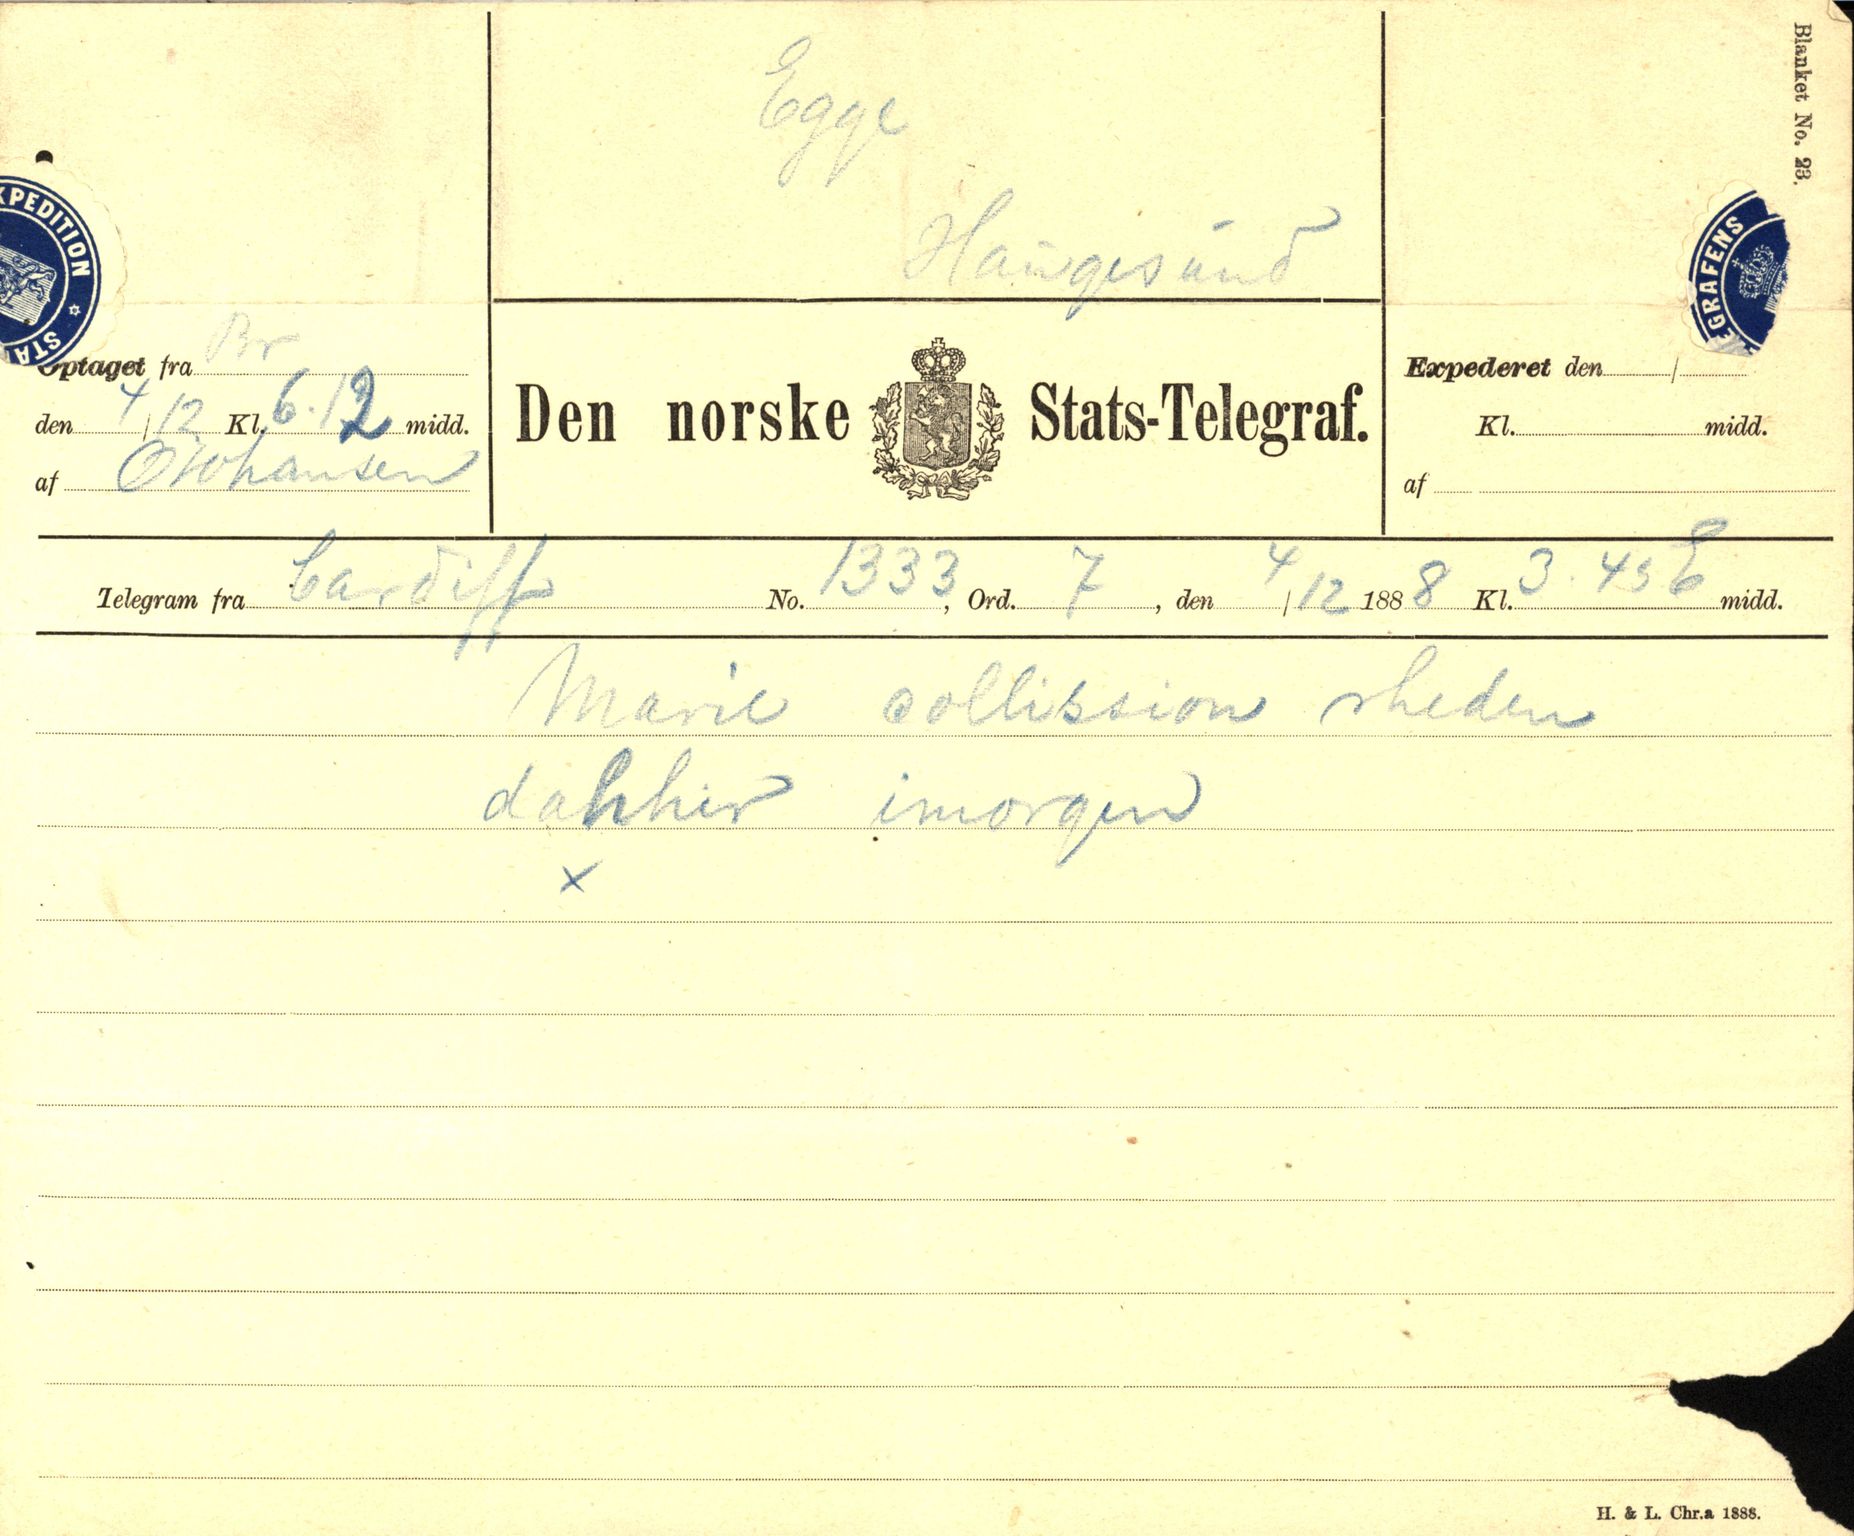 Blanket No. 23.
Egge
Haugesund
XPEDITION
STA
EGRAFENS
Optaget fra Br
den 4/12 Kl. 6.12 midd.
af
Den norske Stats-Telegraf.
Expederet den /
Kl. midd.
af
Telegram fra Cardiff No. 1333, Ord. 7, den 4/12 1888 Kl. 3.45 E midd.
Marie collission rheden
imorgen
x
H. & L. Chr.a 1888.